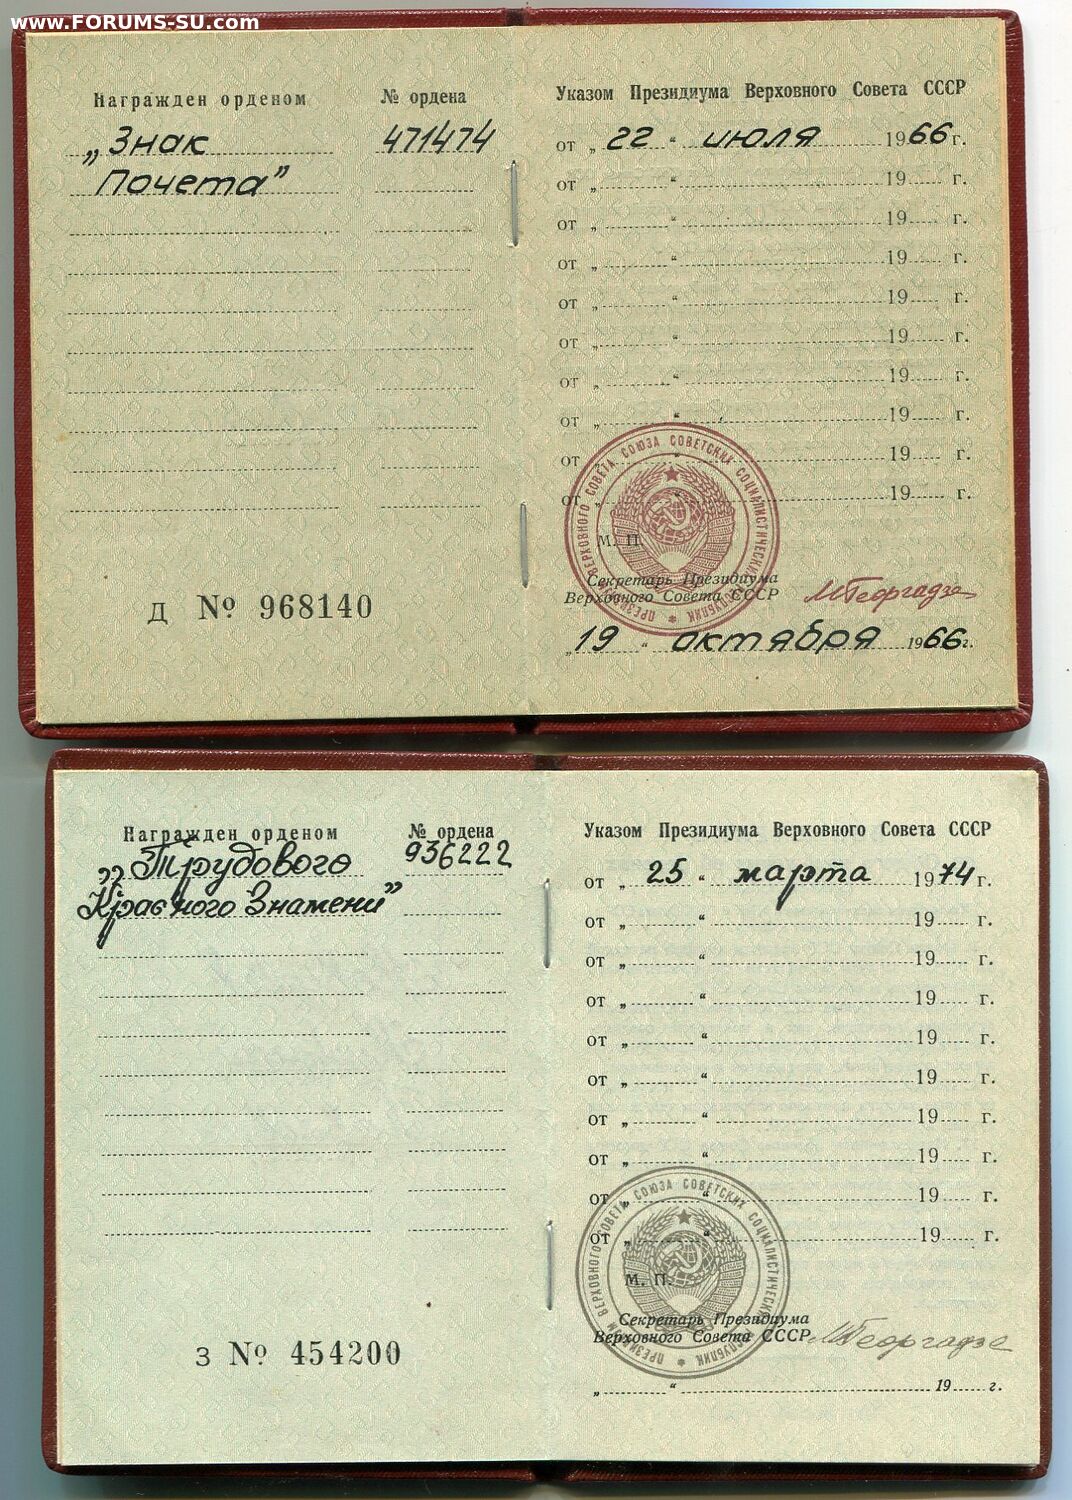 www.FORUMS-SU.com
Награжден орденом № ордена
„Знак 471474
Почета”
Д № 968140
Указом Президиума Верховного Совета СССР
от „ 22 “ июля 1966 г.
от „ “ 19 г.
от „ “ 19 г.
от „ “ 19 г.
от „ “ 19 г.
от „ “ 19 г.
от „ “ 19 г.
от „ “ 19 г.
от „ “ 19 г.
от „ “ 19 г.
ПРЕЗИДИУМ ВЕРХОВНОГО СОВЕТА СОЮЗА СОВЕТСКИХ СОЦИАЛИСТИЧЕСКИХ РЕСПУБЛИК
М. П.
Секретарь Президиума
Верховного Совета СССР МГеоргадзе
„ 19 “ октября 1966 г.
Награжден орденом № ордена
„Трудового 936222
Красного Знамени”
З № 454200
Указом Президиума Верховного Совета СССР
от „ 25 “ марта 1974 г.
от „ “ 19 г.
от „ “ 19 г.
от „ “ 19 г.
от „ “ 19 г.
от „ “ 19 г.
от „ “ 19 г.
от „ “ 19 г.
от „ “ 19 г.
от „ “ 19 г.
ПРЕЗИДИУМ ВЕРХОВНОГО СОВЕТА СОЮЗА СОВЕТСКИХ СОЦИАЛИСТИЧЕСКИХ РЕСПУБЛИК
М. П.
Секретарь Президиума
Верховного Совета СССР МГеоргадзе
„ “ 19 г.